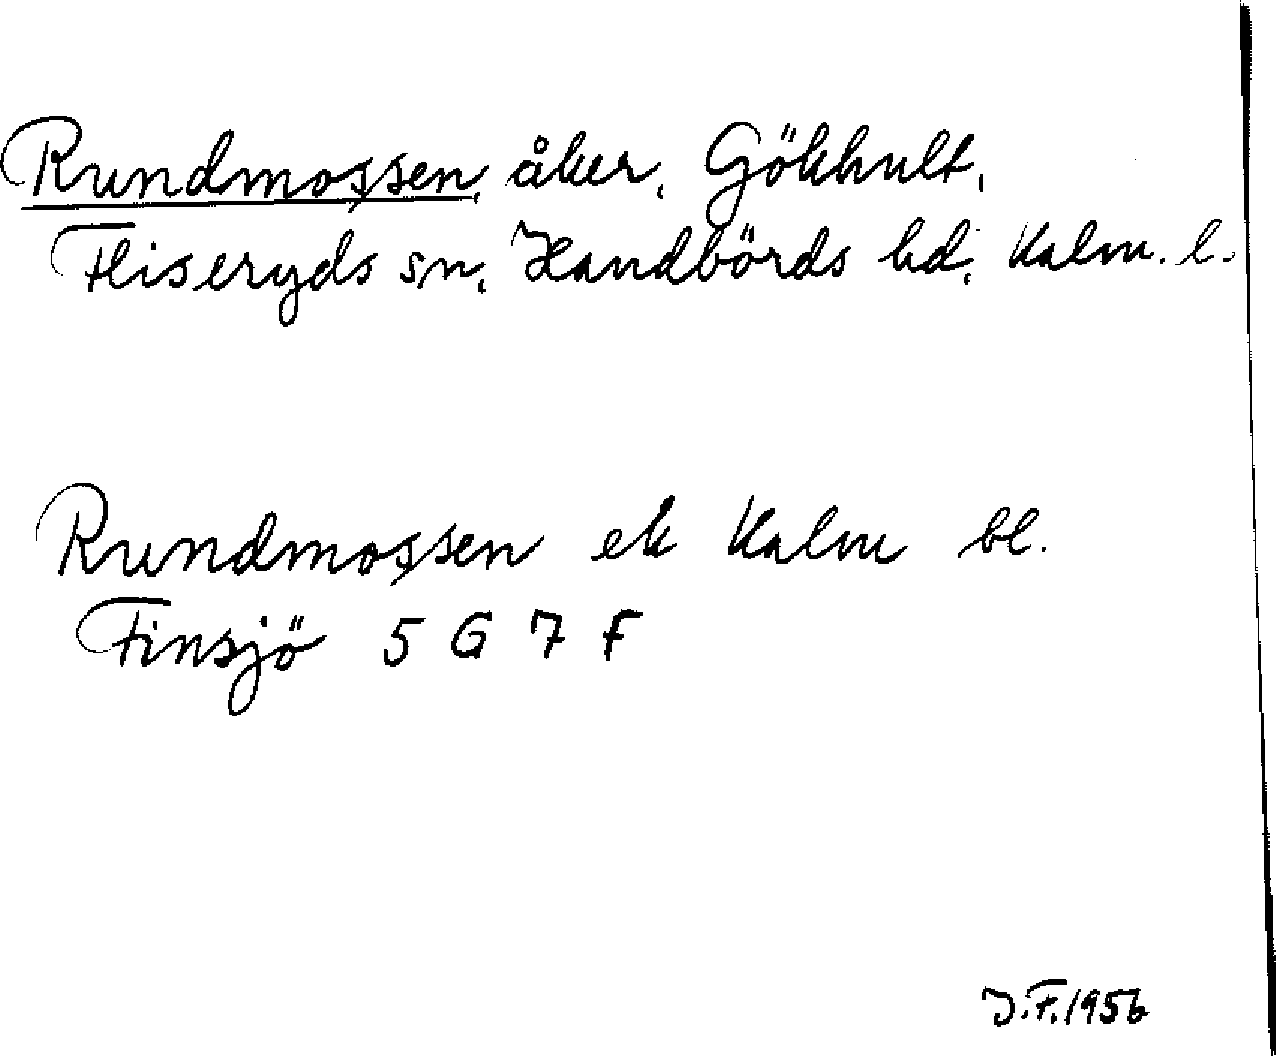 Rundmossen, åker, Gökhult,
Fliseryds sn, Handbörds hd, Kalm. l.
Rundmossen ek Kalm bl.
Finsjö 5 G 7 F
J.F. 1956